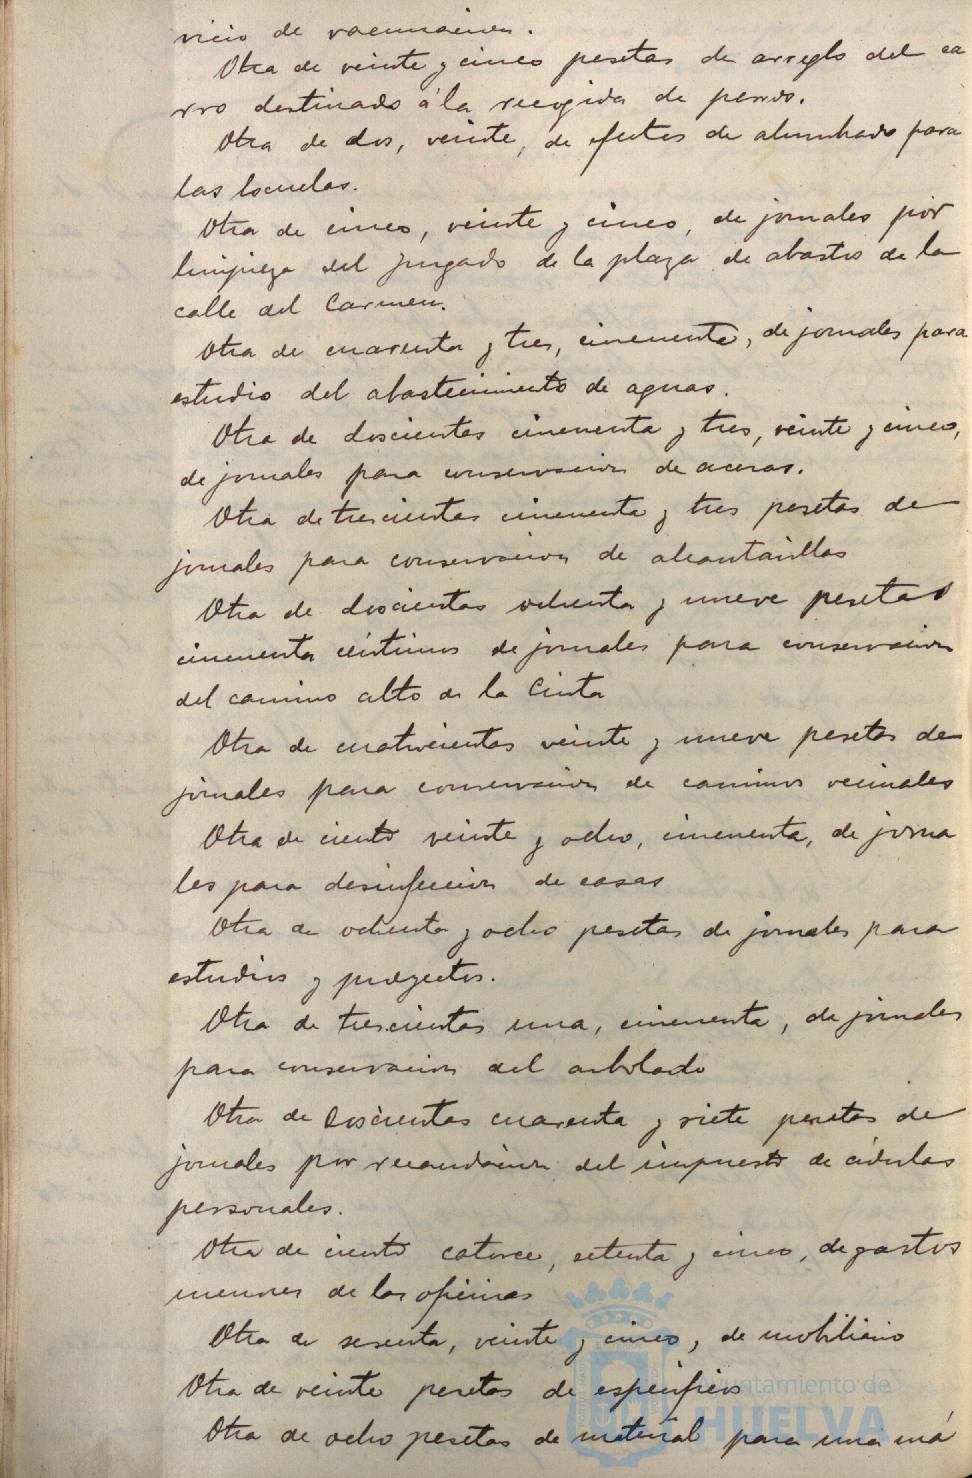 vicio de vacunacion.
Otra de veinte y cinco pesetas de arreglo del ca
rro destinado á la recogida de perros.
Otra de dos, veinte, de efectos de alumbrado para
las Escuelas.
Otra de cinco, veinte y cinco, de jornales por
limpieza del Juzgado de la plaza de abastos de la
calle del Carmen.
Otra de cuarenta y tres, cincuenta, de jornales para
estudio del abastecimiento de aguas.
Otra de doscientas cincuenta y tres, veinte y cinco,
de jornales para conservacion de aceras.
Otra de trescientas cincuenta y tres pesetas de
jornales para conservacion de alcantarillas
Otra de doscientas ochenta y nueve pesetas
cincuenta céntimos de jornales para conservacion
del camino alto de la Cinta
Otra de cuatrocientas veinte y nueve pesetas de
jornales para conservacion de caminos vecinales
Otra de ciento veinte y ocho, cincuenta, de jorna
les para desinfeccion de casas
Otra de ochenta y ocho pesetas de jornales para
estudios y proyectos.
Otra de trescientas una, cincuenta, de jornales
para conservacion del arbolado
Otra de Doscientas cuarenta y siete pesetas de
jornales por recaudacion del impuesto de cédulas
personales.
Otra de ciento catorce, setenta y cinco, de gastos
menores de las oficinas
Otra de sesenta, veinte y cinco, de mobiliario
Otra de veinte pesetas de específicos
Otra de ocho pesetas de material para una má
Ayuntamiento de
HUELVA